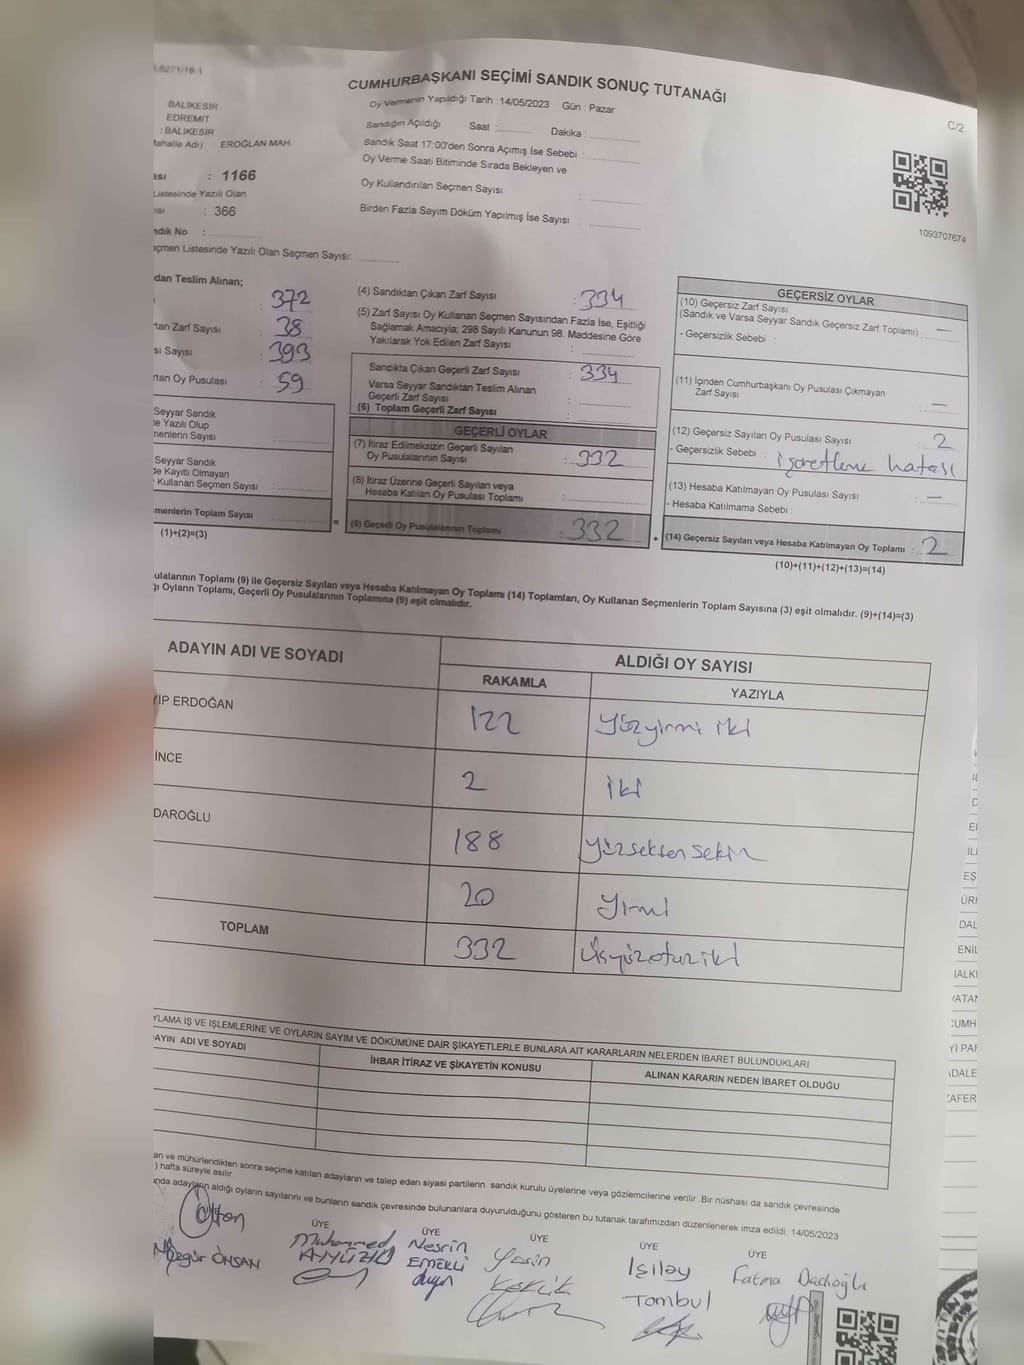 CUMHURBAŞKANI SEÇİMİ SANDIK SONUÇ TUTANAĞI
Oy Vermenin Yapıldığı Tarih : 14/05/2023 Gün : Pazar
C/2
BALIKESİR
EDREMİT
: BALIKESİR
Mahalle Adı) : EROĞLAN MAH.
: 1166
Listesinde Yazılı Olan
: 366
ndık No :
çmen Listesinde Yazılı Olan Seçmen Sayısı:
Sandığın Açıldığı Saat : Dakika :
Sandık Saat 17:00'den Sonra Açımış İse Sebebi :
Oy Verme Saati Bitiminde Sırada Bekleyen ve
Oy Kullandırılan Seçmen Sayısı :
Birden Fazla Sayım Döküm Yapılmış İse Sayısı :
1093707674
dan Teslim Alınan;
: 372
rtan Zarf Sayısı : 38
sı Sayısı : 393
rtan Oy Pusulası : 59
Seyyar Sandık
de Yazılı Olup
menlerin Sayısı :
Seyyar Sandık
de Kayıtlı Olmayan
Kullanan Seçmen Sayısı :
menlerin Toplam Sayısı :
(1)+(2)=(3)
(4) Sandıktan Çıkan Zarf Sayısı : 334
(5) Zarf Sayısı Oy Kullanan Seçmen Sayısından Fazla İse, Eşitliği
Sağlamak Amacıyla; 298 Sayılı Kanunun 98. Maddesine Göre
Yakılarak Yok Edilen Zarf Sayısı :
Sandıkta Çıkan Geçerli Zarf Sayısı : 334
Varsa Seyyar Sandıktan Teslim Alınan
Geçerli Zarf Sayısı :
(6) Toplam Geçerli Zarf Sayısı :
GEÇERLİ OYLAR
(7) İtiraz Edilmeksizin Geçerli Sayılan
Oy Pusulalarının Sayısı : 332
(8) İtiraz Üzerine Geçerli Sayılan veya
Hesaba Katılan Oy Pusulası Toplamı :
= (9) Geçerli Oy Pusulalarının Toplamı : 332
GEÇERSİZ OYLAR
(10) Geçersiz Zarf Sayısı
(Sandık ve Varsa Seyyar Sandık Geçersiz Zarf Toplamı) : —
- Geçersizlik Sebebi :
(11) İçinden Cumhurbaşkanı Oy Pusulası Çıkmayan
Zarf Sayısı : —
(12) Geçersiz Sayılan Oy Pusulası Sayısı : 2
- Geçersizlik Sebebi : işaretleme hatası
(13) Hesaba Katılmayan Oy Pusulası Sayısı : —
- Hesaba Katılmama Sebebi :
+ (14) Geçersiz Sayılan veya Hesaba Katılmayan Oy Toplamı : 2
(10)+(11)+(12)+(13)=(14)
ulalarının Toplamı (9) ile Geçersiz Sayılan veya Hesaba Katılmayan Oy Toplamı (14) Toplamları, Oy Kullanan Seçmenlerin Toplam Sayısına (3) eşit olmalıdır. (9)+(14)=(3)
Oyların Toplamı, Geçerli Oy Pusulalarının Toplamına (9) eşit olmalıdır.
ADAYIN ADI VE SOYADI ALDIĞI OY SAYISI
RAKAMLA YAZIYLA
YİP ERDOĞAN 122 Yüzyirmi iki
İNCE 2 iki
DAROĞLU 188 Yüzseksen sekiz
20 Yirmi
TOPLAM 332 Üçyüzotuz iki
YLAMA İŞ VE İŞLEMLERİNE VE OYLARIN SAYIM VE DÖKÜMÜNE DAİR ŞİKAYETLERLE BUNLARA AİT KARARLARIN NELERDEN İBARET BULUNDUKLARI
AYIN ADI VE SOYADI İHBAR İTİRAZ VE ŞİKAYETİN KONUSU ALINAN KARARIN NEDEN İBARET OLDUĞU
an ve mühürlendikten sonra seçime katılan adayların ve talep eden siyasi partilerin sandık kurulu üyelerine veya gözlemcilerine verilir. Bir nüshası da sandık çevresinde
) hafta süreyle asılır.
ında adayların aldığı oyların sayılarını ve bunların sandık çevresinde bulunanlara duyurulduğunu gösteren bu tutanak tarafımızdan düzenlenerek imza edildi. 14/05/2023
ÜYE ÜYE ÜYE ÜYE ÜYE
Özgür ÖNSAN
Muhammed
Nesrin
EMEKLİ
Yasin
KEKLİK
Işılay
Tombul
Fatma Dadıoğlu
DAL
ENİL
HALKI
VATAN
CUMH
Yİ PAR
ADALE
ZAFER